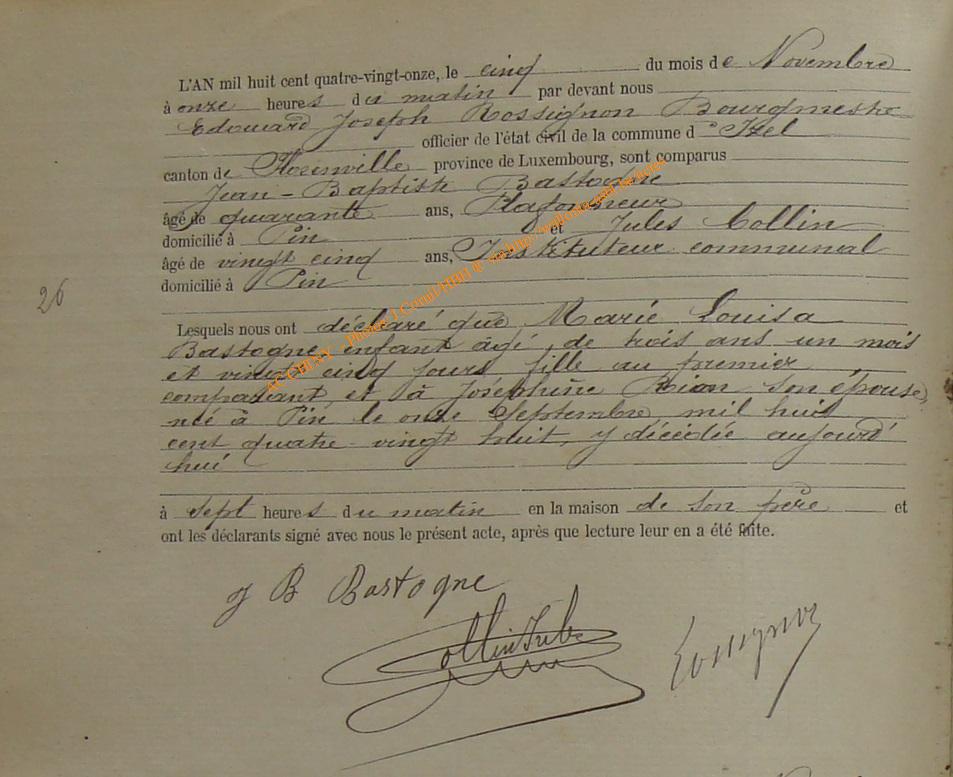 L'AN mil huit cent quatre-vingt-onze, le cinq du mois de Novembre
à onze heures du matin par devant nous
Edouard Joseph Rossignon Bourgmestre
officier de l'état civil de la commune d'Izel
canton de Florenville province de Luxembourg, sont comparus
Jean-Baptiste Bastogne
âgé de quarante ans, Plafonneur
domicilié à Pin et Jules Collin
âgé de vingt cinq ans, Instituteur communal
domicilié à Pin
26
Lesquels nous ont déclaré que Marie Louisa
Bastogne enfant âgé, de trois ans un mois
et vingt cinq jours fille au premier
comparant, et à Joséphine son épouse,
née à Pin le onze Septembre, mil huit
cent quatre-vingt huit, y décédée aujourd'
hui
à sept heures du matin en la maison de son père et
ont les déclarants signé avec nous le présent acte, après que lecture leur en a été faite.
J B Bastogne
Collin Jules
Rossignon